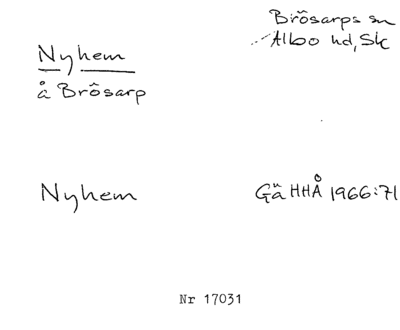 Nyhem
å Brösarp
Brösarps sn
Albo hd, Sk
Nyhem
Gä HHÅ 1966:71
Nr 17031